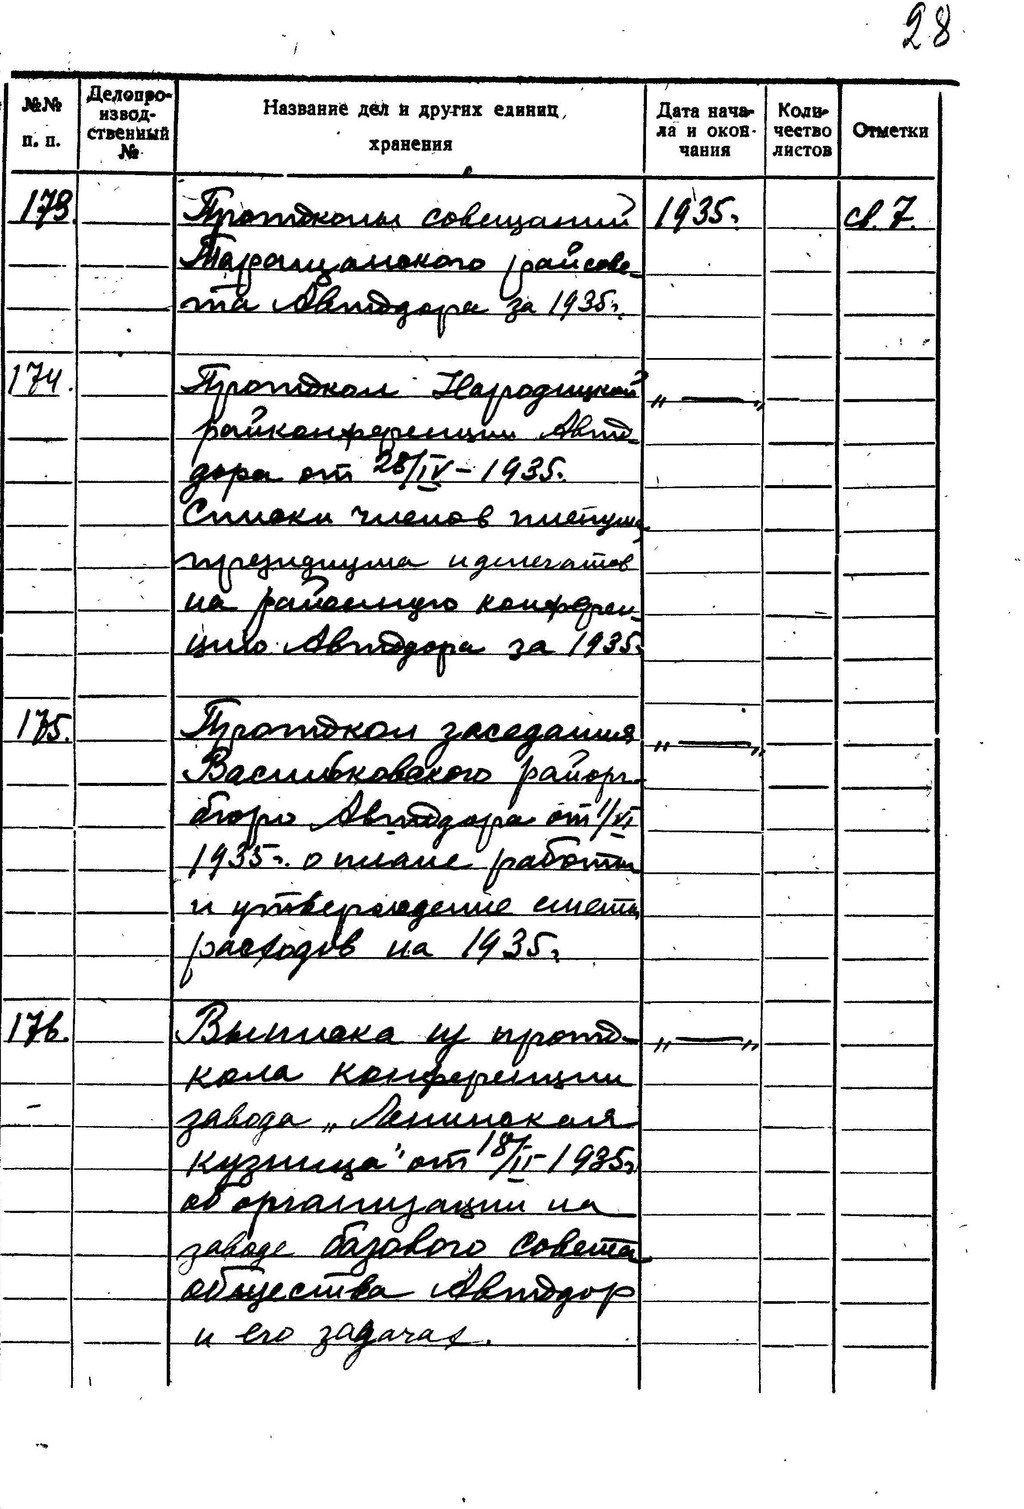 28
№№ п. п. Делопроизводственный № Название дел и других единиц хранения Дата начала и окончания Количество листов Отметки
173. Протоколы совещаний 1935г. св. 7.
Таращанского райсове-
та Автодора за 1935г.
174. Протокол Народицкой „ — „
райконференции Авто-
дора от 28/IV - 1935.
Списки членов пленума
президиума и делегатов
на районную конферен-
цию Автодора за 1935г
175. Протокол заседания „ — „
Васильковского райорг-
бюро Автодора от 1/VI
1935г. о плане работы
и утверждение сметы
расходов на 1935г.
176. Выписка из прото- „ — „
кола конференции
завода „Ленинская
кузница" от 18/II - 1935г
об организации на
заводе базового совета
общества Автодор
и его задачах.